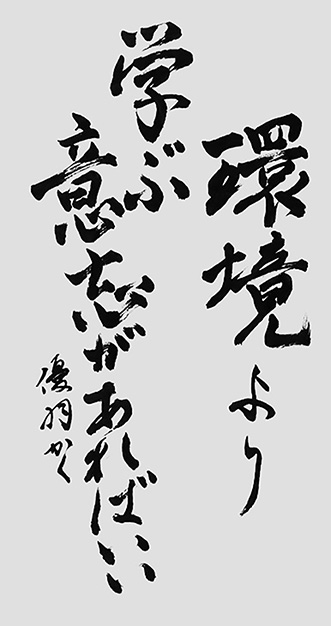 環境より
学ぶ
意志があればいい
優羽かく